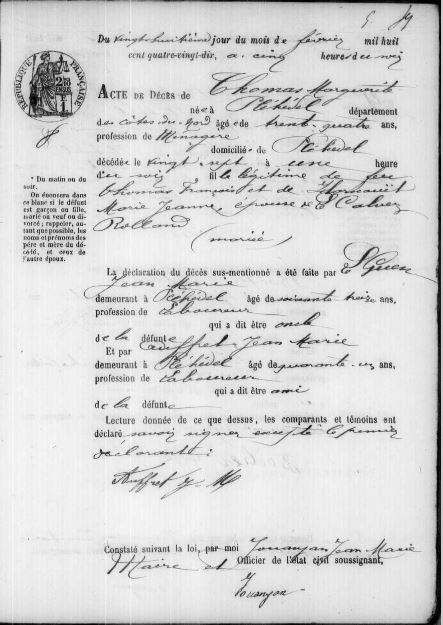 Du vingt huitième jour du mois de février mil huit
cent quatre-vingt-dix, à cinq heures du soir
RÉPUBLIQUE FRANÇAISE
ACTE DE DÉCÈS de Thomas Marguerite
née à Pléhédel département
des côtes du Nord âgée de trente quatre ans,
profession de Ménagère
domiciliée de Pléhédel
décédée le vingt sept à une heure
du soir, fille légitime de feu
Thomas François et de
Marie Jeanne, épouse de Le Calvez
Rolland
(mariée)
* Du matin ou du
soir.
On énoncera dans
ce blanc si le défunt
est garçon ou fille,
marié ou veuf ou di-
vorcé; rappeler, au-
tant que possible, les
noms et prénoms des
père et mère du dé-
cédé, et ceux de
l'autre époux.
La déclaration du décès sus-mentionné a été faite par Le Guen
Jean Marie
demeurant à Pléhédel âgé de soixante treize ans,
profession de Laboureur
qui a dit être oncle
de la défunte
Et par Auffret Jean Marie
demeurant à Pléhédel âgé de quarante un ans,
profession de Laboureur
qui a dit être ami
de la défunte
Lecture donnée de ce que dessus, les comparants et témoins ont
déclaré savoir signer excepté le premier
déclarant.
Auffret J M
Constaté suivant la loi, par moi Jouanjan Jean Marie
Maire et Officier de l'état civil soussignant,
Jouanjan